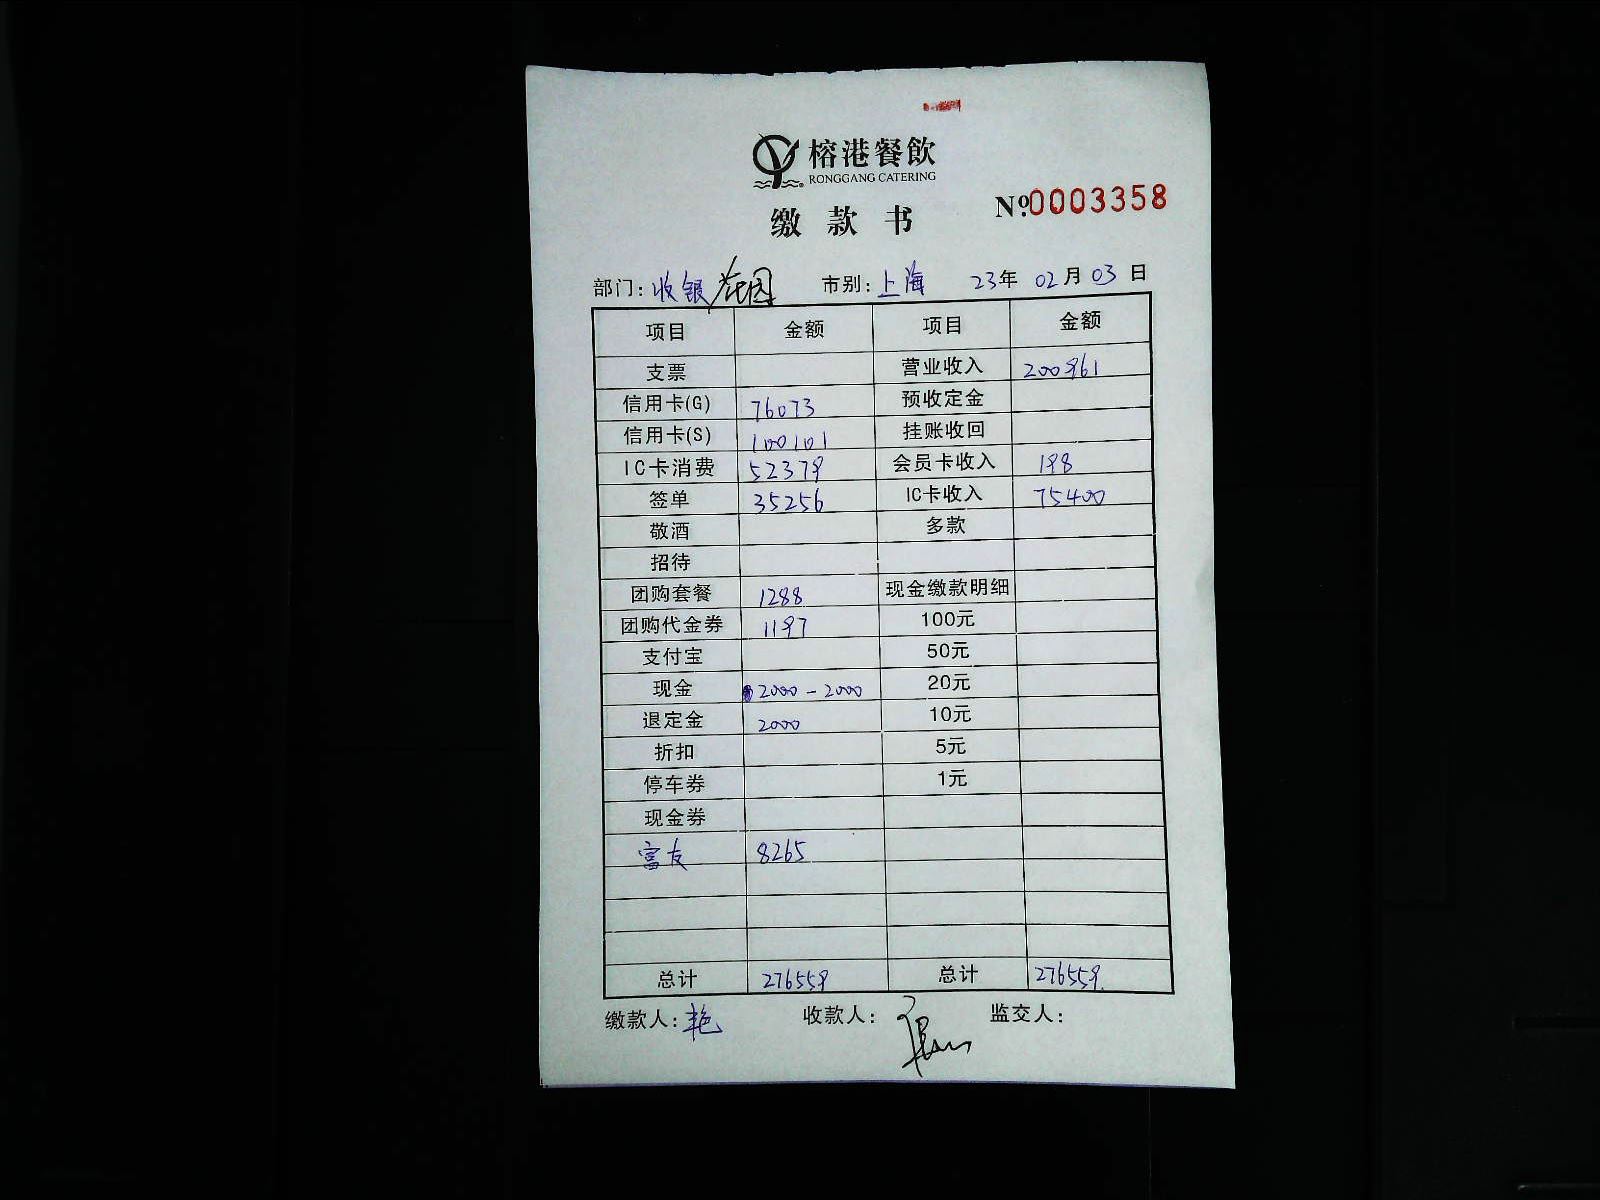 榕港餐飲
RONGGANG CATERING
缴款书
№0003358
部门: 收银 花园 市别: 上海 23年 02月 03日
项目 金额 项目 金额
支票 营业收入 200961
信用卡(G) 76073 预收定金
信用卡(S) 100101 挂账收回
IC卡消费 52379 会员卡收入 198
签单 35256 IC卡收入 75400
敬酒 多款
招待
团购套餐 1288 现金缴款明细
团购代金券 1197 100元
支付宝 50元
现金 2000-2000 20元
退定金 2000 10元
折扣 5元
停车券 1元
现金券
富友 8265
总计 276559 总计 276559
缴款人: 艳 收款人: 监交人: